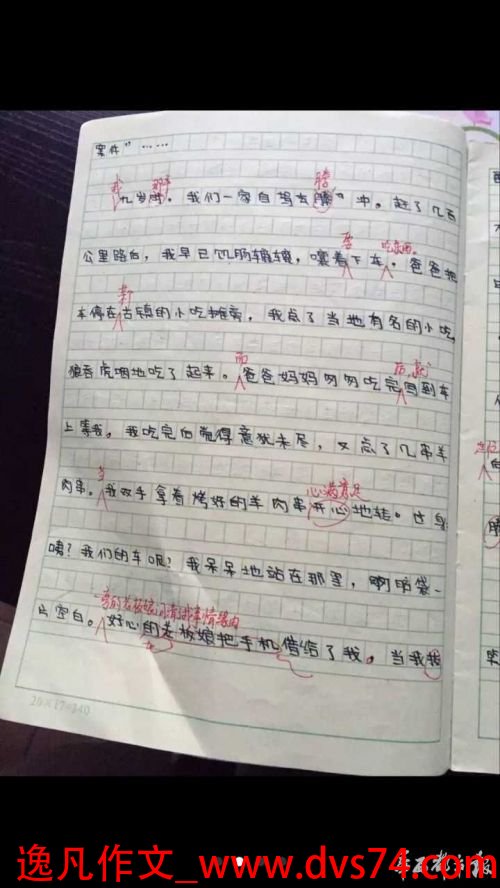 案件"……
我 那年 腾
九岁时，我们一家自驾去冲。赶了几百
要 吃东西。
公里路后，我早已饥肠辘辘，嚷着下车。爸爸把
车停在古镇的小吃摊旁，我点了当地有名的小吃，
而 后，就
狼吞虎咽地吃了起来。爸爸妈妈匆匆吃完回到车
上等我。我吃完后觉得意犹未尽，又点了几串羊
当 心满意足
肉串。我双手拿着烤好的羊肉串开心地转。过身
咦？我们的车呢？我呆呆地站在那里，脑袋一
一旁的老板娘问清事情缘由
片空白。好心的老板娘把手机借给了我。当我
20×17=340
逸凡作文_www.dvs74.com